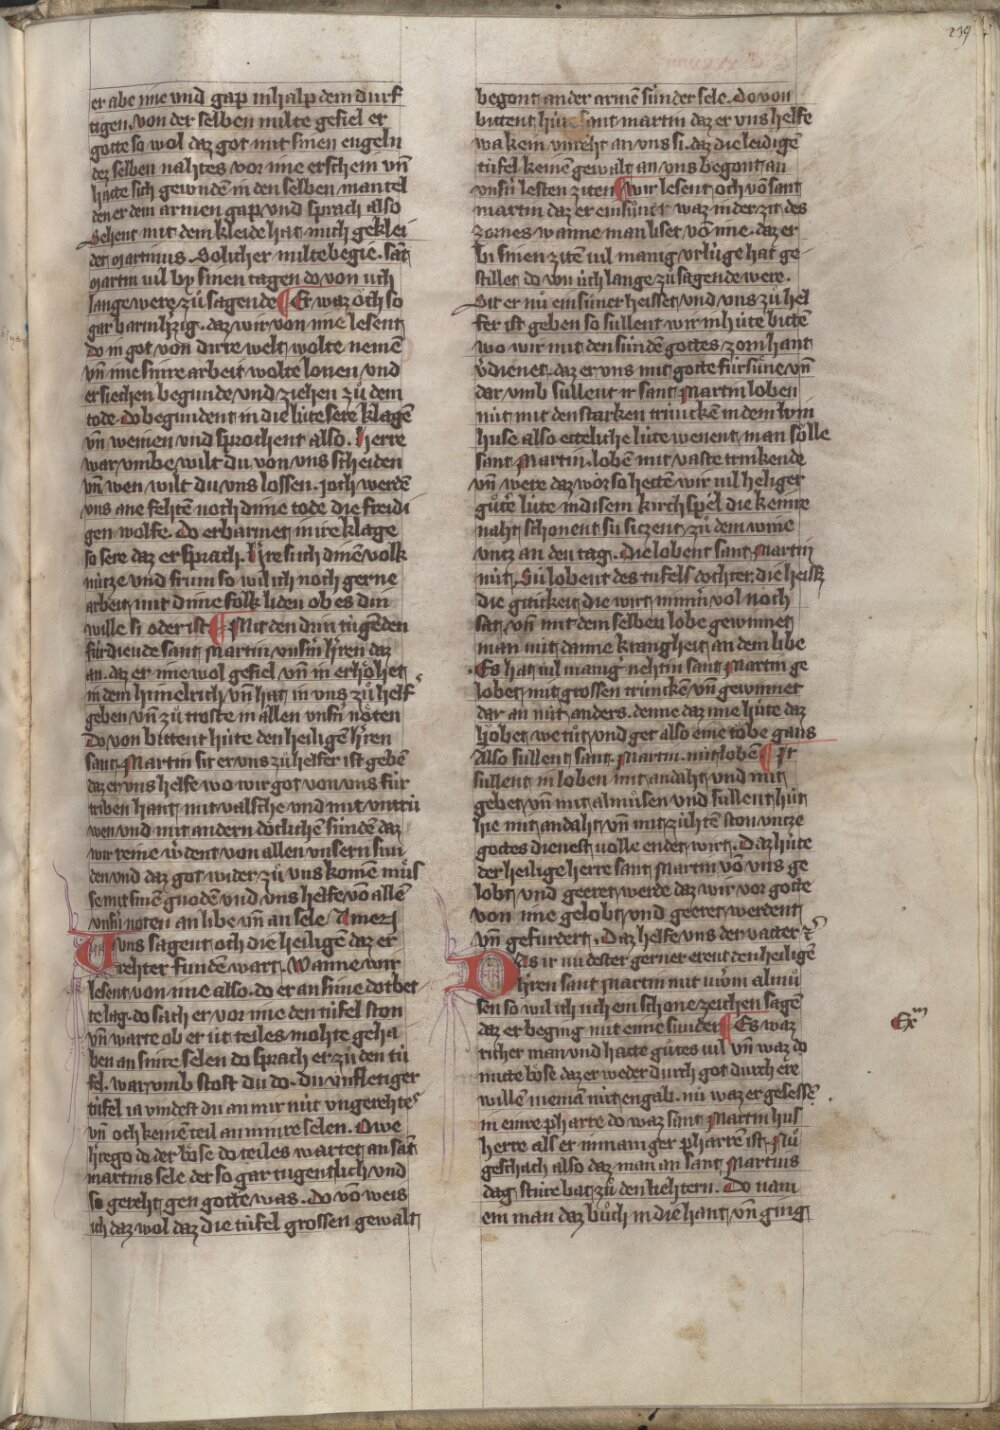 239
er abe ime vnd gap in halp dem dúrf
tigen. von der selben milte gefiel er
gotte so wol daz got mit sinen engeln
dez selben nahtes vor ime erschein vn̄
hatte sich gewndē in den selben mantel
den er dem armen gap vnd sprach also
Sehent mit dem kleide hat mich geklei
det martinus. Solicher milte begie. sāt
martin uil by sinen tagen do von uch
lange were zů sagende ¶ Er waz öch so
gar barmh'zig. daz wir von ime lesent
do in got von dirre welt wolte nemē
vn̄ ime sinre arbeit wolte lonen vnd
er siechen begunde vnd ziehen zů dem
tode. Do begundent in die lúte sere klagē
vn̄ weinen vnd sprochent also. herre
war vmbe wilt du von vns scheiden
vn̄ wen wilt du vns lossen. joch werdē
vns ane fehtē noch dime tode die freidi
gen wolfe. Do erbarmet in ire klage
so sere daz er sprach. h're bich dinē volk
nútze vnd frum so wil ich noch gerne
arbeit mit dime folk liden ob es din
wille si oder ist ¶ Mit den drin tugeden
fúrdiende sant Martin vnsm h'ren daz
an. daz er ime wol gefiel vn̄ in erhöhet
in dem himelrich vn̄ hat in vns zů helf'
geben vn̄ zů troste in allen vnsn' nöten
Do von bittent húte den heiligē h'ren
sant. Martin sit er vns zů helfer ist gebē
daz er vns helfe wo wir got von vns fúr
triben hant. mit valsche vnd mit vntrú
wen vnd mit andern dötlichē súndē daz
wir reine w'dent von allen vnsern sún
den vnd daz got wider zů vns komē můs
se mit sinē gnodē vnd vns helfe vō allē
vnsn' noten an libe vn̄ an sele Amen
Uns sagent och die heiligē daz er
rehter fundē wart. Wanne wir
lesent von ime also. do er an sime dotbet
te lag. do sach er vor ime den túfel ston
vn̄ warte ob er út teiles mohte geha
ben an sinre selen do sprach er zů den tú
fel. war vmb stost du do. du vnfletiger
túfel ia vindest du an mir nút vngerehtes
vn̄ och keinē teil an minre selen. Owe
h're go do der böse do teiles wartet an sāt
martins sele der so gar tugentlich vnd
so gereht gen gotte was. do vō weis
ich daz wol daz die túfel grossen gewalt
begont an der armē súnder sele. do von
bittent húte sant martin daz er vns helfe
wa kein vnreht an vns si. daz die leidigē
túfel keinē gewalt an vns begont an
vnsn' lesten ziten ¶ Wir lesent och vō sant
martin daz er ein sůner waz in der zit des
zornes wanne man liset vō ime. daz er
bi sinen zitē uil manig vrlúge hat ge
stillet do von úch lange zů sagende were.
Sit er nů ein sůner heisset vnd vns zů hel
fer ist geben so súllent wir in húte bittē
wo wir mit den súndē gottes zorn hant
v'dienet. daz er vns mit gotte fúrsůne vn̄
dar vmb súllent ir sant Martin loben
nút mit den starken trúnckē in dem win
huse also etteliche lúte wenent man sölle
sant Martin. lobē mit vaste trinkende
vn̄ were daz wor so hettē wir uil heliger
gůt' lúte in disem kirchspel die keinre
naht schonent sú sitzent zů dem wine
vntz an den tag. die lobent sant Martin
nút. Sú lobent des túfels dochter. die heisset
die gitikeit die wirt nimm' vol noch
sat. vn̄ mit dem selben lobe gewinnet
man mit danne krangheit an dem libe
Es hat uil manig' nehtin sant Martin ge
lobet mit grossen trúnckē vn̄ gewinnet
dar an nút anders. denne daz ime húte daz
höbet we tút vnd get also eine töbe gans
Also súllent sant. Martin. nút loben ¶ Ir
súllent in loben mit andaht vnd mit
gebet vn̄ mit almůsen vnd súllent hút
hie mit andaht vn̄ mit zúhtē ston vntze
gottes dienest volle endet wirt. Daz húte
der heilige herre sant Martin vō vns ge
lobt vnd geeret werde daz wir vor gotte
von ime gelobt vnd geeret werdent
vn̄ gefurdert. Daz helfe vns der vatter &c
Das ir nu dester gerner erent den heiligē
h'ren sant Martin mit uwm almů
sen so wil ich uch ein schone zeichen sagē
daz er beging mit eime sunder ¶ Es waz
Exm
richer man vnd hatte gůtes uil vn̄ waz do
mitte böse daz er weder durch got durch ere
willē niemā nút engab. nú waz er gesessē
in einre pharre do waz sant Martin hus
herre als er in maniger pharrē ist. Nú
geschach also daz man an sant Martins
dag stúre bat zů den liehtern. Do nam
ein man daz bůch in die hant vn̄ ging